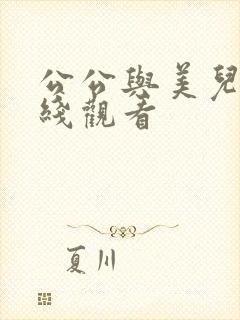 公公與美兒
綫觀看
夏川